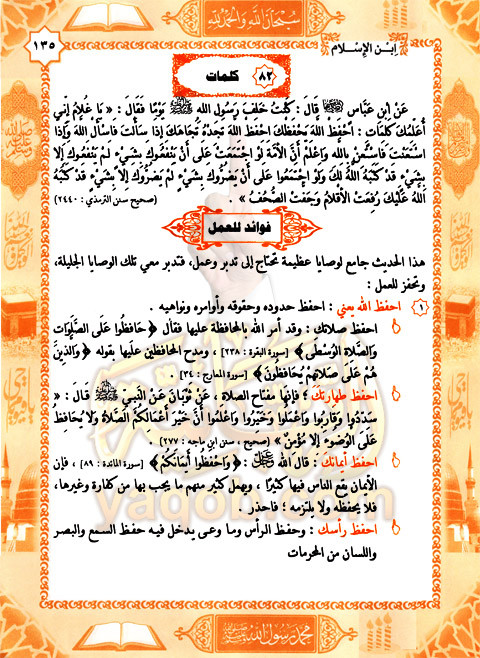 سبحان الله والحمد لله
ابن الإسلام
١٣٥
٨٢ كلمات
عَنْ ابْنِ عَبَّاسٍ قَالَ : كُنْتُ خَلْفَ رَسُولِ الله ﷺ يَوْمًا فَقَالَ : « يَا غُلَامُ إِنِّي
أُعَلِّمُكَ كَلِمَاتٍ : احْفَظْ اللهَ يَحْفَظْكَ احْفَظْ اللهَ تَجِدْهُ تُجَاهَكَ إِذَا سَأَلْتَ فَاسْأَلْ اللهَ وَإِذَا
اسْتَعَنْتَ فَاسْتَعِنْ بِالله وَاعْلَمْ أَنَّ الأُمَّةَ لَوْ اجْتَمَعَتْ عَلَى أَنْ يَنْفَعُوكَ بِشَيْءٍ لَمْ يَنْفَعُوكَ إِلَّا
بِشَيْءٍ قَدْ كَتَبَهُ اللهُ لَكَ وَلَوْ اجْتَمَعُوا عَلَى أَنْ يَضُرُّوكَ بِشَيْءٍ لَمْ يَضُرُّوكَ إِلَّا بِشَيْءٍ قَدْ كَتَبَهُ
اللهُ عَلَيْكَ رُفِعَتْ الْأَقْلَامُ وَجَفَّتْ الصُّحُفُ » . (صحيح سنن الترمذي : ٢٤٤٠)
فوائد للعمل
هذا الحديث جامع لوصايا عظيمة تحتاج إلى تدبر وعمل، فتدبر معي تلك الوصايا الجليلة،
وتحفز للعمل :
١ احفظ الله يعني : احفظ حدوده وحقوقه وأوامره ونواهيه .
احفظ صلاتك : وقد أمر الله بالمحافظة عليها فقال ﴿ حَافِظُوا عَلَى الصَّلَوَاتِ
وَالصَّلَاةِ الْوُسْطَى ﴾ [سورة البقرة : ٢٣٨] ، ومدح المحافظين عليها بقوله ﴿ وَالَّذِينَ
هُمْ عَلَى صَلَاتِهِمْ يُحَافِظُونَ ﴾ [سورة المعارج : ٣٤] .
احفظ طهارتك : فإنها مفتاح الصلاة ، عَنْ ثَوْبَانَ عَنْ النَّبِيِّ ﷺ قَالَ : «
سَدِّدُوا وَقَارِبُوا وَاعْمَلُوا وَخَيِّرُوا وَاعْلَمُوا أَنَّ خَيْرَ أَعْمَالِكُمْ الصَّلَاةُ وَلَا يُحَافِظُ
عَلَى الْوُضُوءِ إِلَّا مُؤْمِنٌ » (صحيح ، سنن ابن ماجه : ٢٧٧) .
احفظ أيمانك : قال الله ﷻ : ﴿ وَاحْفَظُوا أَيْمَانَكُمْ ﴾ [سورة المائدة : ٨٩] ، فإن
الأيمان يقع الناس فيها كثيرًا ، ويهمل كثير منهم ما يجب بها من كفارة وغيرها،
فلا يحفظه ولا يلتزمه ؛ فاحذر .
احفظ رأسك : وحفظ الرأس وما وعى يدخل فيه حفظ السمع والبصر
واللسان من المحرمات
yaqob.com
محمد رسول الله